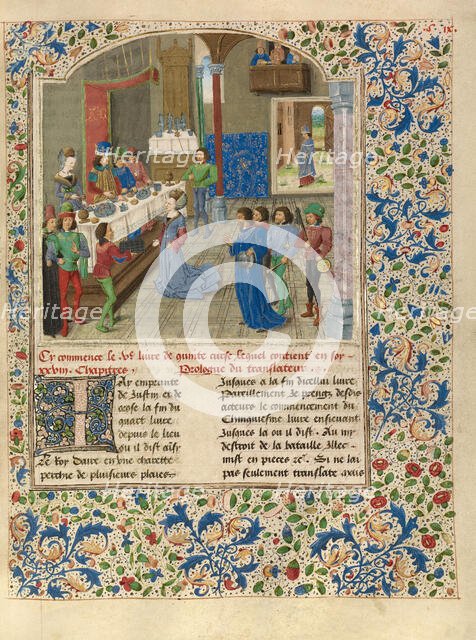 S. ix.
Cy commence le Ve livre de quinte curse lequel contient en soy
xxviii. Chapitres.
Prologue du translateur.
Jay emprunte
de Justin, et de
orose la fin du
quart livre
depuis le lieu
ou il dist ainsy
Le Roy Daire en une charette
perchie de plusieurs playes.
Jusques a la fin dicellui livre
Pareillement Je prengz desdis
acteurs le commencement du
Cinquiesme livre ensieuant
Jusques la ou il dist. Au my
destroit de la bataille Illec
mist en pieces et c. Si ne lai
pas seulement translate mais
Heritage
Heritage
Heritage
Heritage
Heritage
Heritage
Heritage
Heritage